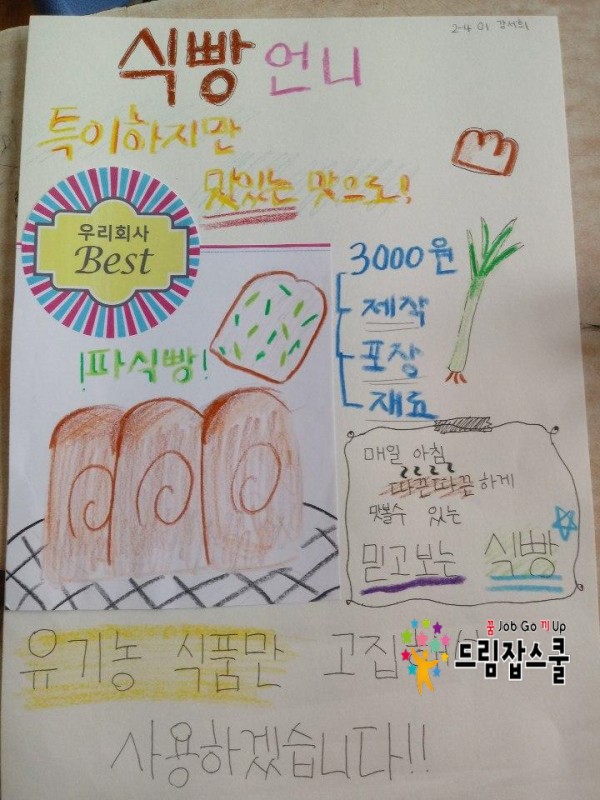 2-4 01 강서희
식빵 언니
특이하지만
맛있는 맛으로!
우리회사
Best
3000원
제작
포장
재료
!파식빵!
매일 아침
따끈따끈하게
맛볼수 있는
믿고보는 식빵
유기농 식품만 고집
꿈 Job Go 끼 Up
드림잡스쿨
사용하겠습니다!!